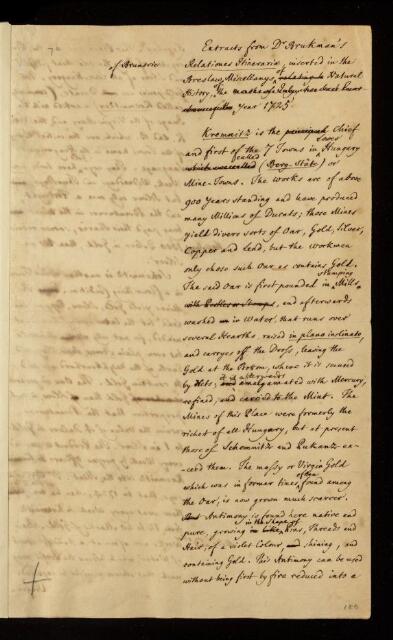 7
of Brunsvic
Extracts from Dr Brukman's
Relationes Itineraria, inserted in the
Breslaw Miscellanys of relating to Natural
History. The
Year 1725
Kremnitz is the principal Chief
and first of the 7 Towns in Hungary
which are called called (Berg-Städte) or
Mine-Towns. The works are of above
900 Years standing and have produced
many Millions of Ducats; those Mines
yield divers sorts of Oar, Gold, Silver,
Copper and Lead, but the workmen
only chose such Oar as contains Gold.
The said Oar is first pounded in stamping Mills,
with Pestles or Stamps, and afterwards
washed in in Water, that runs over
several Hearths raised in plano inclinato,
and carryes off the Dross, leaving the
Gold at the Bottom, where it is
by it is afterwards and amalgamated with Mercury,
refined, and carried to the Mint. The
Mines of this Place were formerly the
richest of all Hungary, but at present
those of Schemnitz and Pukantz ex-
-ceed them. The massy or Virgin Gold
which was in former times often found among
the Oar, is now grown much scarcer.
Antimony is found here native and
pure, growing in like in the shape of Pins, Threads and
Hair; of a violet Colour, and shining, and
containing Gold. This Antimony can be used
without being first by fire reduced into a